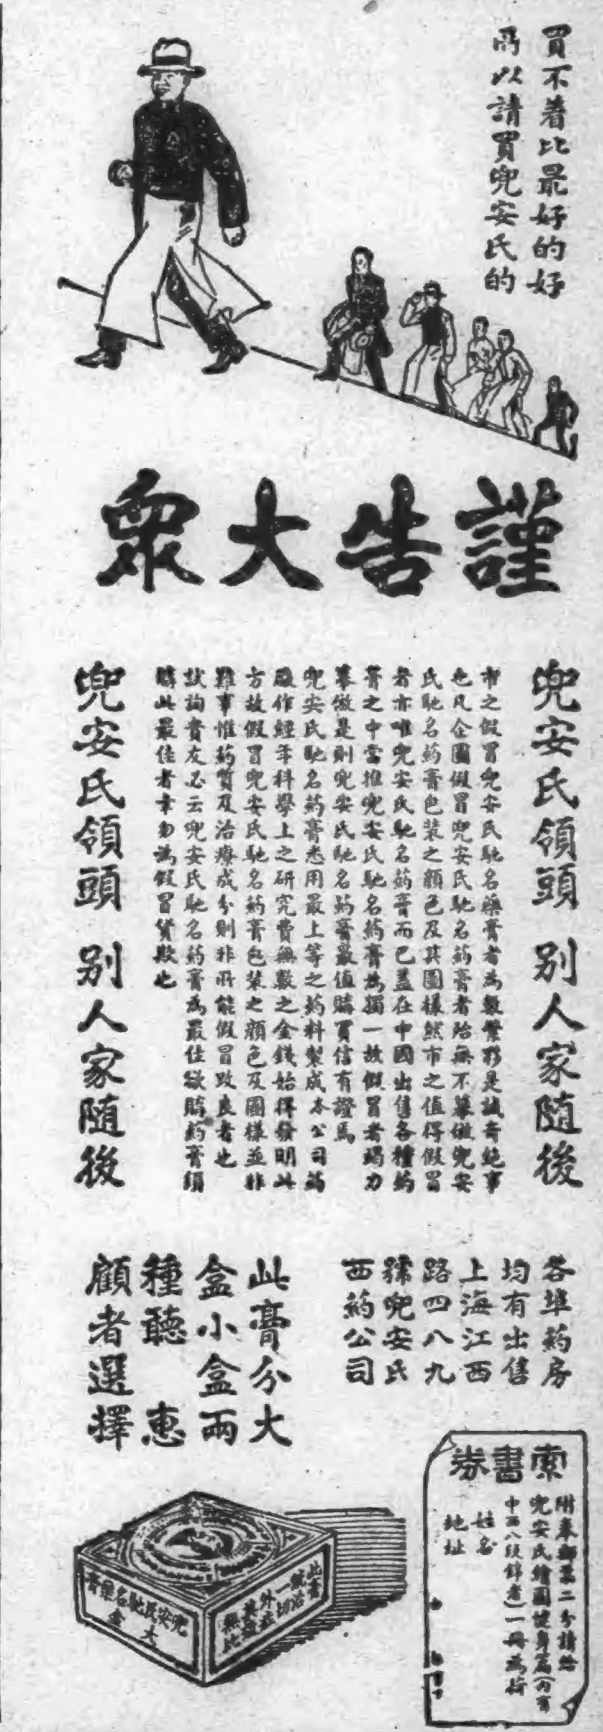 買不着比最好的好
所以請買兜安氏的
謹告大眾
兜安氏領頭 別人家隨後
市之假冒兜安氏馳名藥膏者為數繁夥是誠奇絕事
也凡企圖假冒兜安氏馳名葯膏者殆無不摹倣兜安
氏馳名葯膏包裝之顏色及其圖樣然市之值得假冒
者亦唯兜安氏馳名葯膏而已蓋在中國出售各種葯
膏之中當推兜安氏馳名葯膏為獨一故假冒者竭力
摹倣是則兜安氏馳名葯膏最值購買信有證焉
兜安氏馳名葯膏悉用最上等之葯料製成本公司葯
經年科學上之研究費無數之金錢始得發明此
方故假冒兜安氏馳名葯膏包裝之顏色及圖樣並非
難事惟葯質及治療成分則非所能假冒改良者也
試詢貴友必云兜安氏馳名葯膏為最佳欲購葯膏須
購此最佳者幸勿為假冒貨欺也
兜安氏領頭 別人家隨後
各埠葯房
均有出售
上海江西
路四八九
號兜安氏
西葯公司
此膏分大
盒小盒兩
種聽 惠
顧者選擇
索書券
附奉郵票二分請給
兜安氏繪圖健身篇(內有
中西八段錦者)一冊為荷
姓名
地址
兜安氏馳名藥膏
大盒
此膏
統治
一切
外症
其效
無比